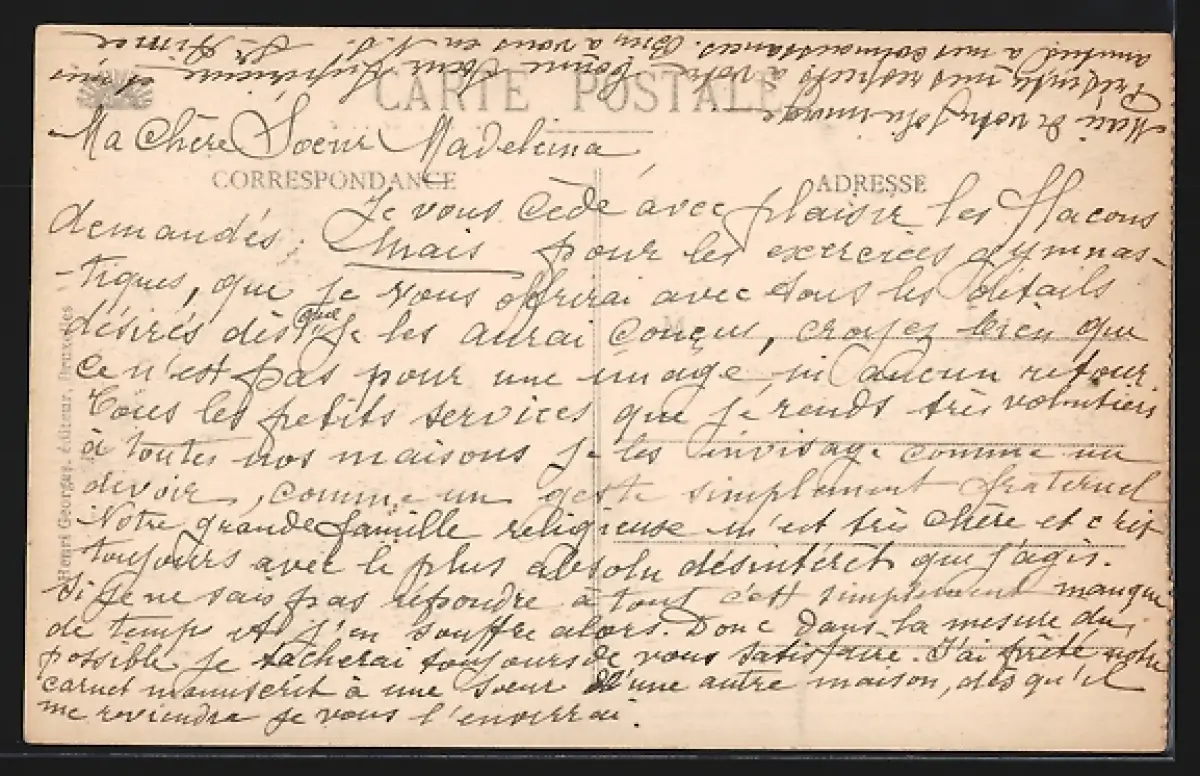 CARTE POSTALE
CORRESPONDANCE
ADRESSE
Ma chère Soeur Madeleina
Je vous cède avec plaisir les flacons
demandés, mais pour les exercices gymnas-
-tiques, que je vous offrirai avec tous les détails
désirés dès que je les aurai conçus, croyez bien que
ce n'est pas pour une image ni aucun retour.
Tous les petits services que je rends très volontiers
à toutes nos maisons je les invisage comme un
devoir, comme un geste simplement fraternel
Notre grande famille religieuse m'est très chère et c'est
toujours avec le plus absolu désintéret que j'agis.
Si je ne sais pas répondre à tout c'est simplement manque
de temps et j'en souffre alors. Donc dans la mesure du
possible je tacherai toujours de vous satisfaire. J'ai prêté notre
carnet manuscrit à une soeur d'une autre maison, dès qu'il
me reviendra je vous l'enverrai.
Merci de votre jolie image
Présentez mes respects à votre bonne Soeur Supérieure et mes
amitiés à mes connaissances. Bien à vous en N.S. Sr Aimée
Henri Georges, éditeur, Bruxelles